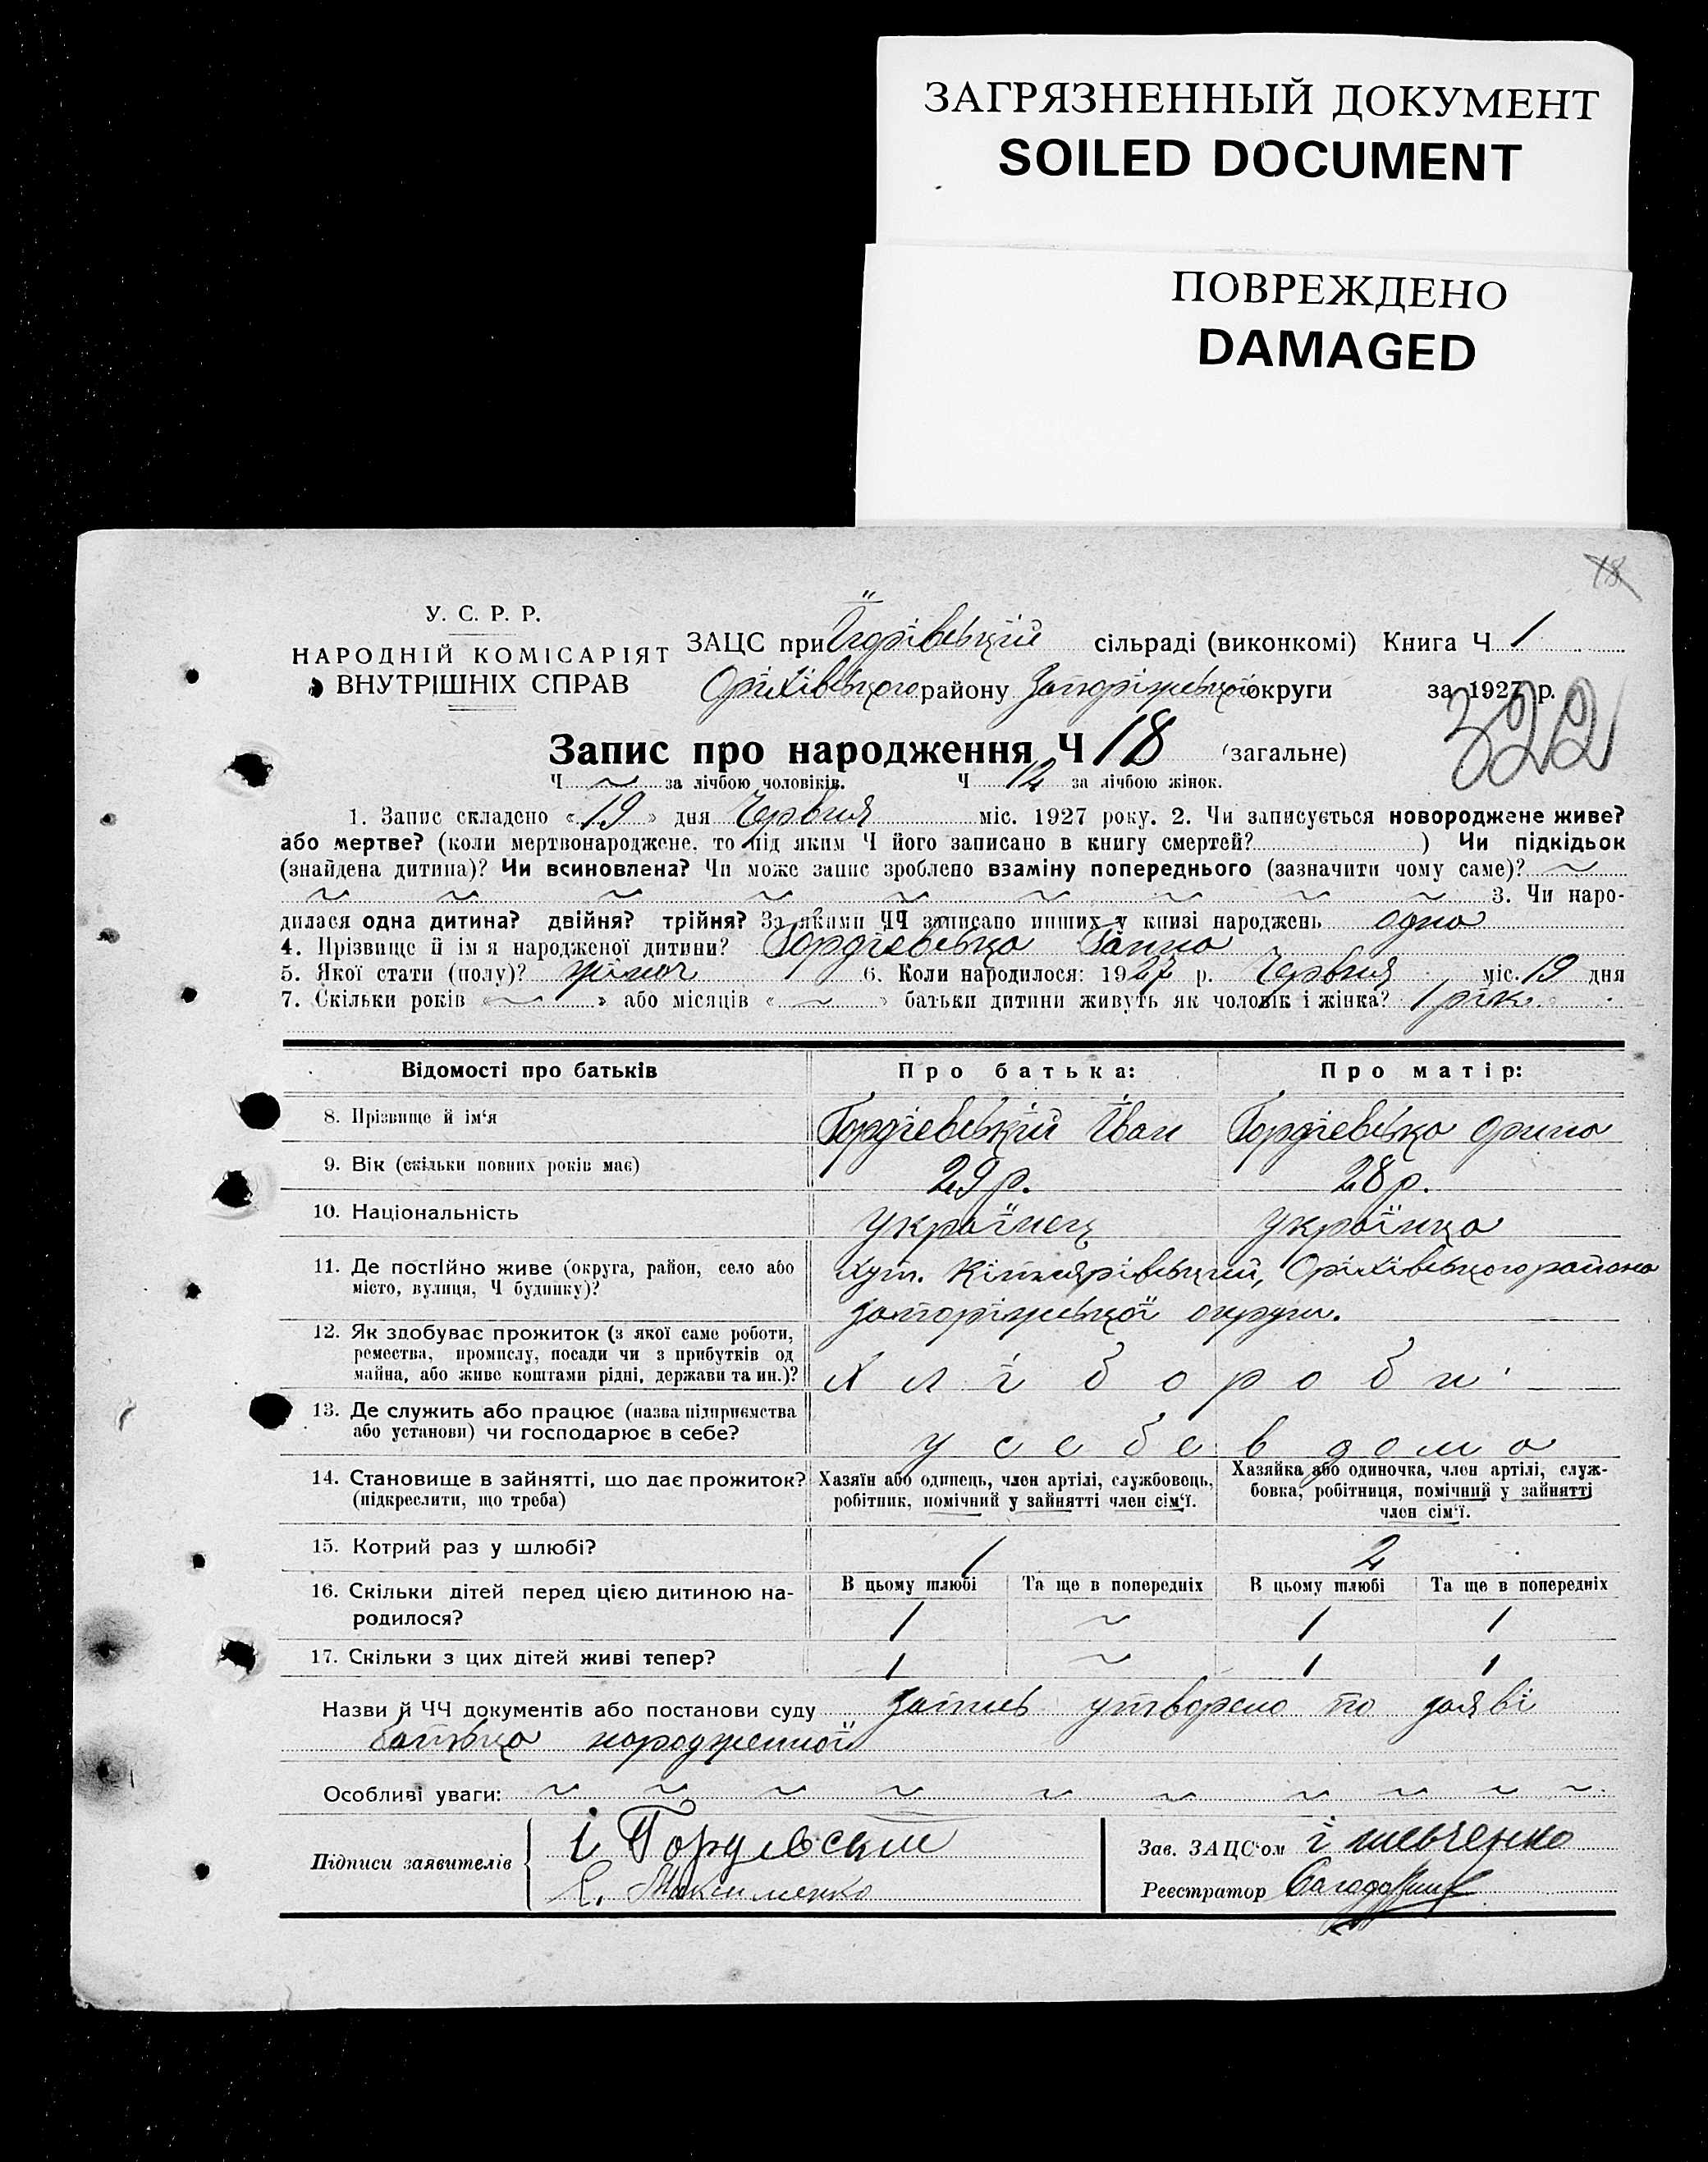 ЗАГРЯЗНЕННЫЙ ДОКУМЕНТ
SOILED DOCUMENT
ПОВРЕЖДЕНО
DAMAGED
18
У. С. Р. Р.
НАРОДНІЙ КОМІСАРІЯТ
ВНУТРІШНІХ СПРАВ
ЗАЦС при сільраді (виконкомі) Книга Ч 1
Оріхівського району Запоріжської округи за 1927 р.
322
Запис про народження Ч 18 (загальне)
Ч ~ за лічбою чоловіків. Ч 12 за лічбою жінок.
1. Запис складено «19» дня Червня міс. 1927 року. 2. Чи записується новороджене живе?
або мертве? (коли мертвонароджене, то під яким Ч його записано в книгу смертей? ) Чи підкідьок
(знайдена дитина)? Чи всиновлена? Чи може запис зроблено взаміну попереднього (зазначити чому саме)? ~
~ ~ ~ ~ ~ ~ ~ ~ ~ 3. Чи наро-
дилася одна дитина? двійня? трійня? За якими ЧЧ записано инших у книзі народжень одна
4. Прізвище й ім я народженої дитини? Гордієвська Ганна
5. Якої стати (полу)? жіноч 6. Коли народилося: 1927 р. Червня міс. 19 дня
7. Скільки років «~» або місяців «~» батьки дитини живуть як чоловік і жінка? 1 рік.
Відомості про батьків Про батька: Про матір:
8. Прізвище й ім‘я Гордієвський Іван Гордієвська Орина
9. Вік (скільки повних років має) 29 р. 28 р.
10. Національність українець українка
11. Де постійно живе (округа, район, село або Хут. Оріхівського района
місто, вулиця, Ч будинку)? Запоріжської округи.
12. Як здобуває прожиток (з якої саме роботи,
ремества, промислу, посади чи з прибутків од
майна, або живе коштами рідні, держави та ин.)? Хлібороби
13. Де служить або працює (назва підприємства
або установи) чи господарює в себе? у себе в дома
14. Становище в зайнятті, що дає прожиток? Хазяїн або одинець, член артілі, службовець, Хазяйка або одиночка, член артілі, служ-
(підкреслити, що треба) робітник, помічний у зайнятті член сім‘ї. бовка, робітниця, помічний у зайнятті
член сім‘ї.
15. Котрий раз у шлюбі? 1 2
16. Скільки дітей перед цією дитиною на- В цьому шлюбі Та ще в попередніх В цьому шлюбі Та ще в попередніх
родилося? 1 ~ 1 1
17. Скільки з цих дітей живі тепер? 1 ~ 1 1
Назви й ЧЧ документів або постанови суду Запись утворено по заяві
батька народженної
Особливі уваги: ~ ~ ~ ~ ~ ~ ~ ~ ~ ~
Підписи заявителів і Гордевский Зав. ЗАЦС‘ом і шевченко
Е. Максименко Реєстратор